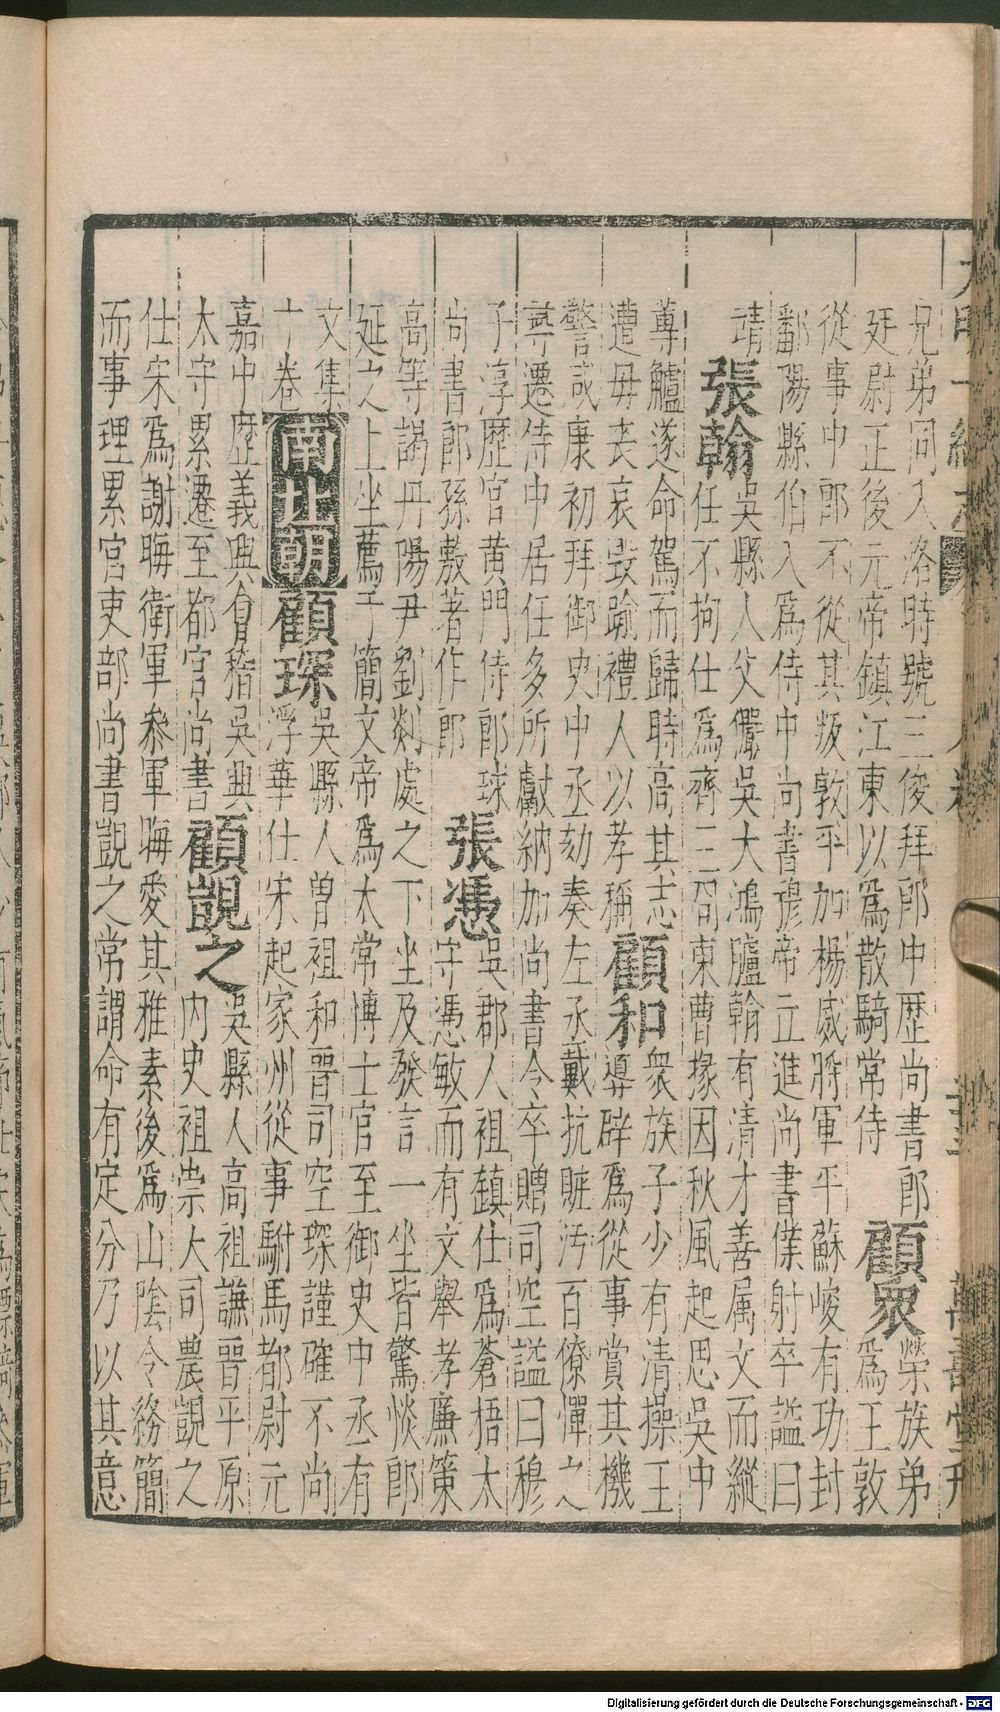 兄弟同入洛時號三俊拜郎中歷尚書郎
廷尉正後元帝鎮江東以爲散騎常侍
顧衆
榮族弟
爲王敦
從事中郎不從其叛敦平加楊威將軍平蘇峻有功封
鄱陽縣伯入爲侍中尚書穆帝立進尚書僕射卒謚曰
靖
張翰
吳縣人父儼吳大鴻臚翰有清才善属文而縱
任不拘仕爲齊王冏東曹掾因秋風起思吳中
蓴鱸遂命駕而歸時高其志
遭母丧哀毀踰禮人以孝稱
顧和
衆族子少有清操王
導辟爲從事賞其機
警咸康初拜御史中丞劾奏左丞戴抗賍污百僚憚之
尋遷侍中居任多所獻納加尚書令卒贈司空謚曰穆
子淳歷官黄門侍郎球
尚書郎孫敷著作郎
張憑
吳郡人祖鎮仕爲蒼梧太
守憑敏而有文舉孝廉策
高等謁丹陽尹劉惔處之下坐及發言一坐皆驚惔郎
延之上坐薦于簡文帝爲太常博士官至御史中丞有
文集
十卷
南北朝
顧琛
吳縣人曾祖和晋司空琛謹確不尚
浮華仕宋起家州從事駙馬都尉元
嘉中歷義興會稽吳興
太守累遷至都官尚書
顧覬之
吳縣人高祖謙晋平原
内史祖崇大司農覬之
仕宋爲謝晦衛軍叅軍晦愛其雅素後爲山陰令務簡
而事理累官吏部尚書覬之常謂命有定分乃以其意
Digitalisierung gefördert durch die Deutsche Forschungsgemeinschaft - DFG